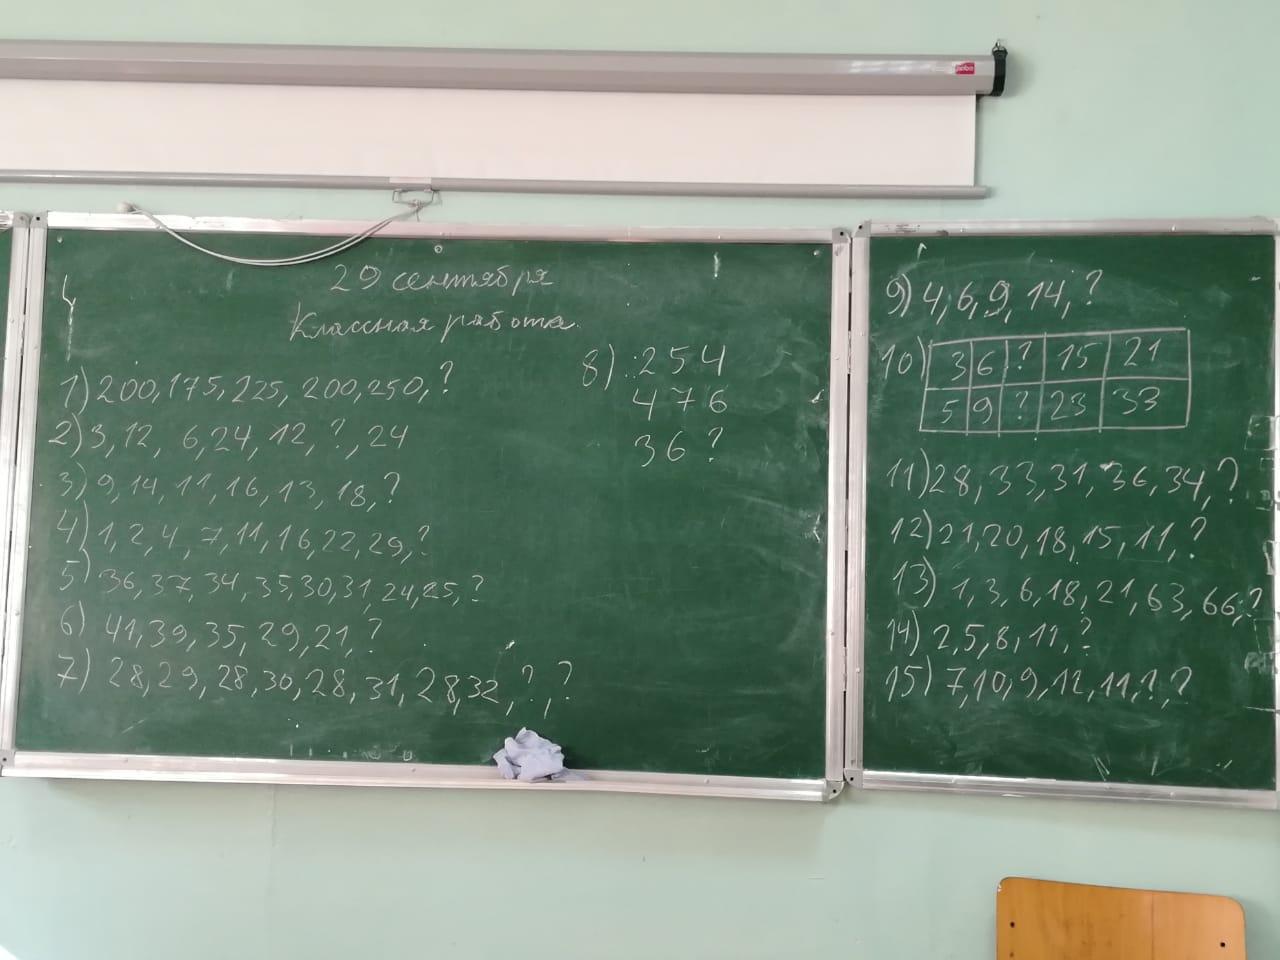 29 сентября
Классная работа.
1) 200, 175, 225, 200, 250, ?
2) 3, 12, 6, 24, 12, ?, 24
3) 9, 14, 11, 16, 13, 18, ?
4) 1, 2, 4, 7, 11, 16, 22, 29, ?
5) 36, 37, 34, 35, 30, 31, 24, 25, ?
6) 41, 39, 35, 29, 21, ?
7) 28, 29, 28, 30, 28, 31, 28, 32, ?, ?
8) 254
476
36?
9) 4, 6, 9, 14, ?
10) 3 6 ? 15 21
5 9 ? 23 33
11) 28, 33, 31, 36, 34, ?
12) 21, 20, 18, 15, 11, ?
13) 1, 3, 6, 18, 21, 63, 66, ?
14) 2, 5, 8, 11, ?
15) 7, 10, 9, 12, 11, ?, ?